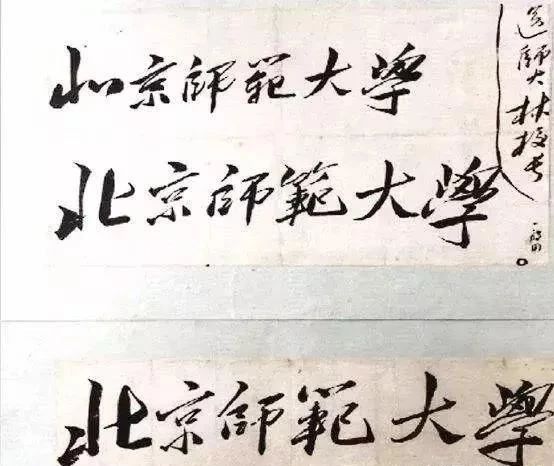 北京師範大學
北京師範大學
送師大林校長
北京師範大學